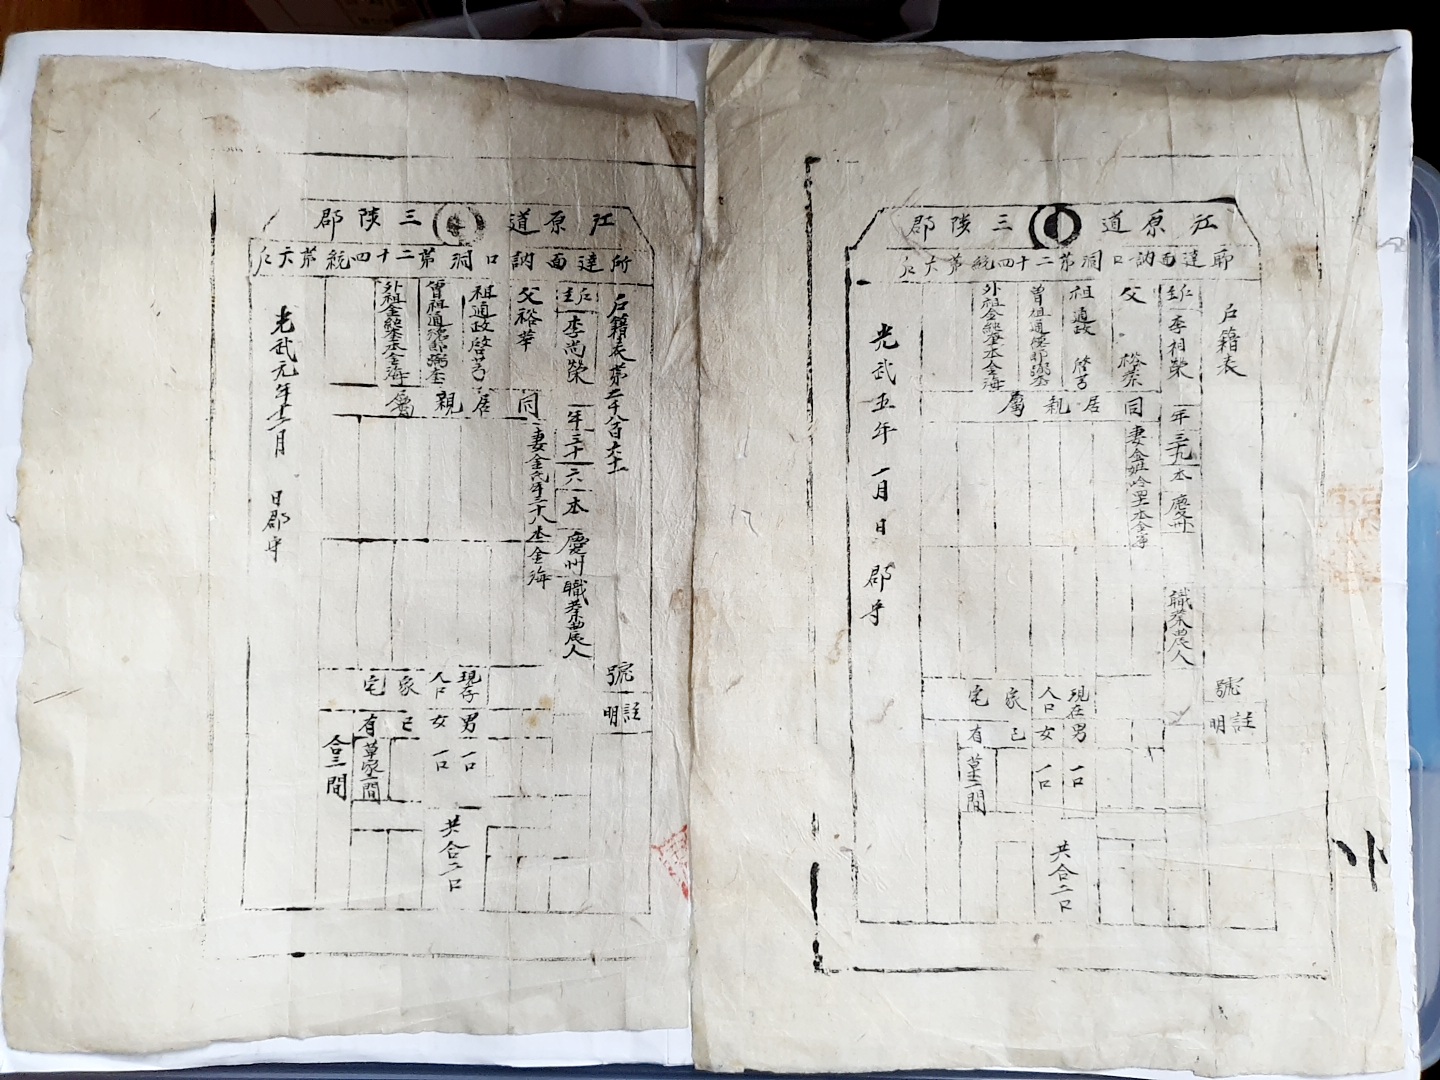 江原道 三陟郡
所達面訥口洞第二十四統第六戶
戶籍表 第二千八百六十
號
註明
戶主 李尚榮 年三十六 本 慶州 職業農人
父裕華
祖通政啓芳
曾祖通德郎
外祖金 本金海
同居親屬
妻金氏年三十八本金海
現存人口
男 一口
女 一口
共合二口
家宅
己有
草家二間
合三間
光武元年十二月 日郡守
江原道 三陟郡
所達面訥口洞第二十四統第六戶
戶籍表
號
註明
戶主 李相榮 年三十九 本 慶州 職業農人
父 裕
祖 通政 啓芳
曾祖通德郎
外祖金 本金海
同居親屬
妻金姓 本金海
現在人口
男 一口
女 一口
共合二口
家宅
己有
草 二間
光武五年 一月 日 郡守